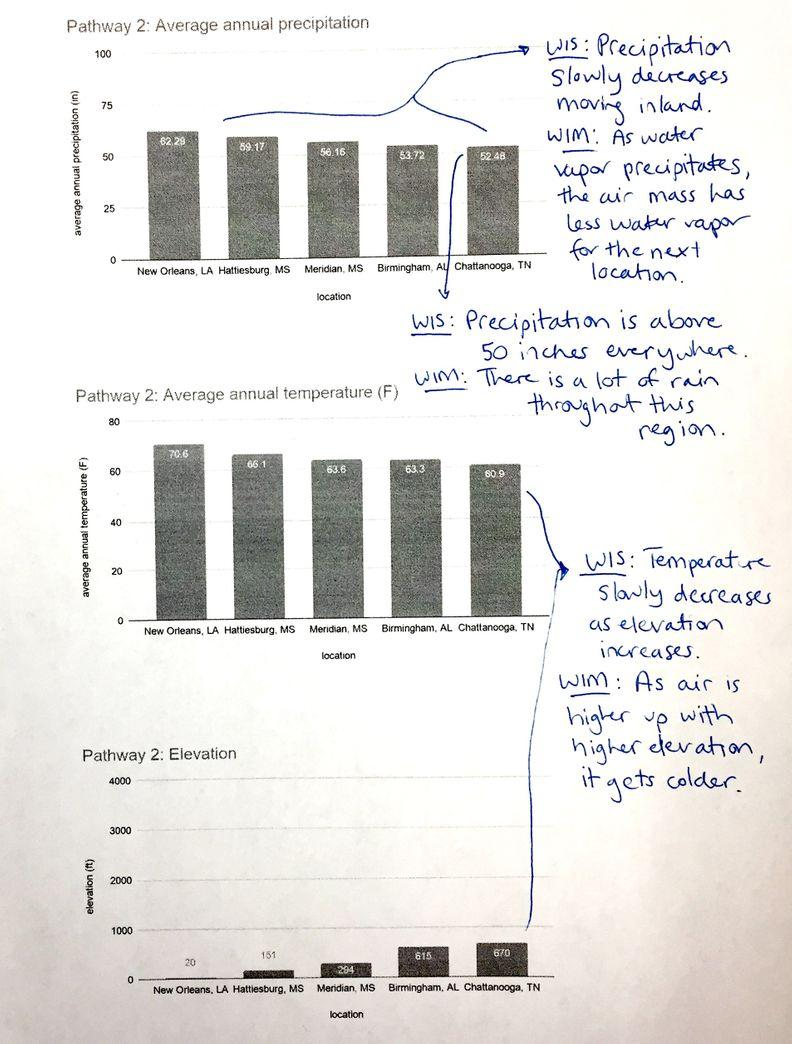 Pathway 2: Average annual precipitation
average annual precipitation (in)
100
75
50
25
0
62.29
59.17
56.16
53.72
52.48
New Orleans, LA Hattiesburg, MS Meridian, MS Birmingham, AL Chattanooga, TN
location
WIS: Precipitation
Slowly decreases
moving inland.
WIM: As water
vapor precipitates,
the air mass has
less water vapor
for the next
location.
WIS: Precipitation is above
50 inches everywhere.
WIM: There is a lot of rain
throughout this
region.
Pathway 2: Average annual temperature (F)
average annual temperature (F)
80
60
40
20
0
70.6
66.1
63.6
63.3
60.9
New Orleans, LA Hattiesburg, MS Meridian, MS Birmingham, AL Chattanooga, TN
location
WIS: Temperature
slowly decreases
as elevation
increases.
WIM: As air is
higher up with
higher elevation,
it gets colder.
Pathway 2: Elevation
elevation (ft)
4000
3000
2000
1000
0
20
151
294
615
670
New Orleans, LA Hattiesburg, MS Meridian, MS Birmingham, AL Chattanooga, TN
location